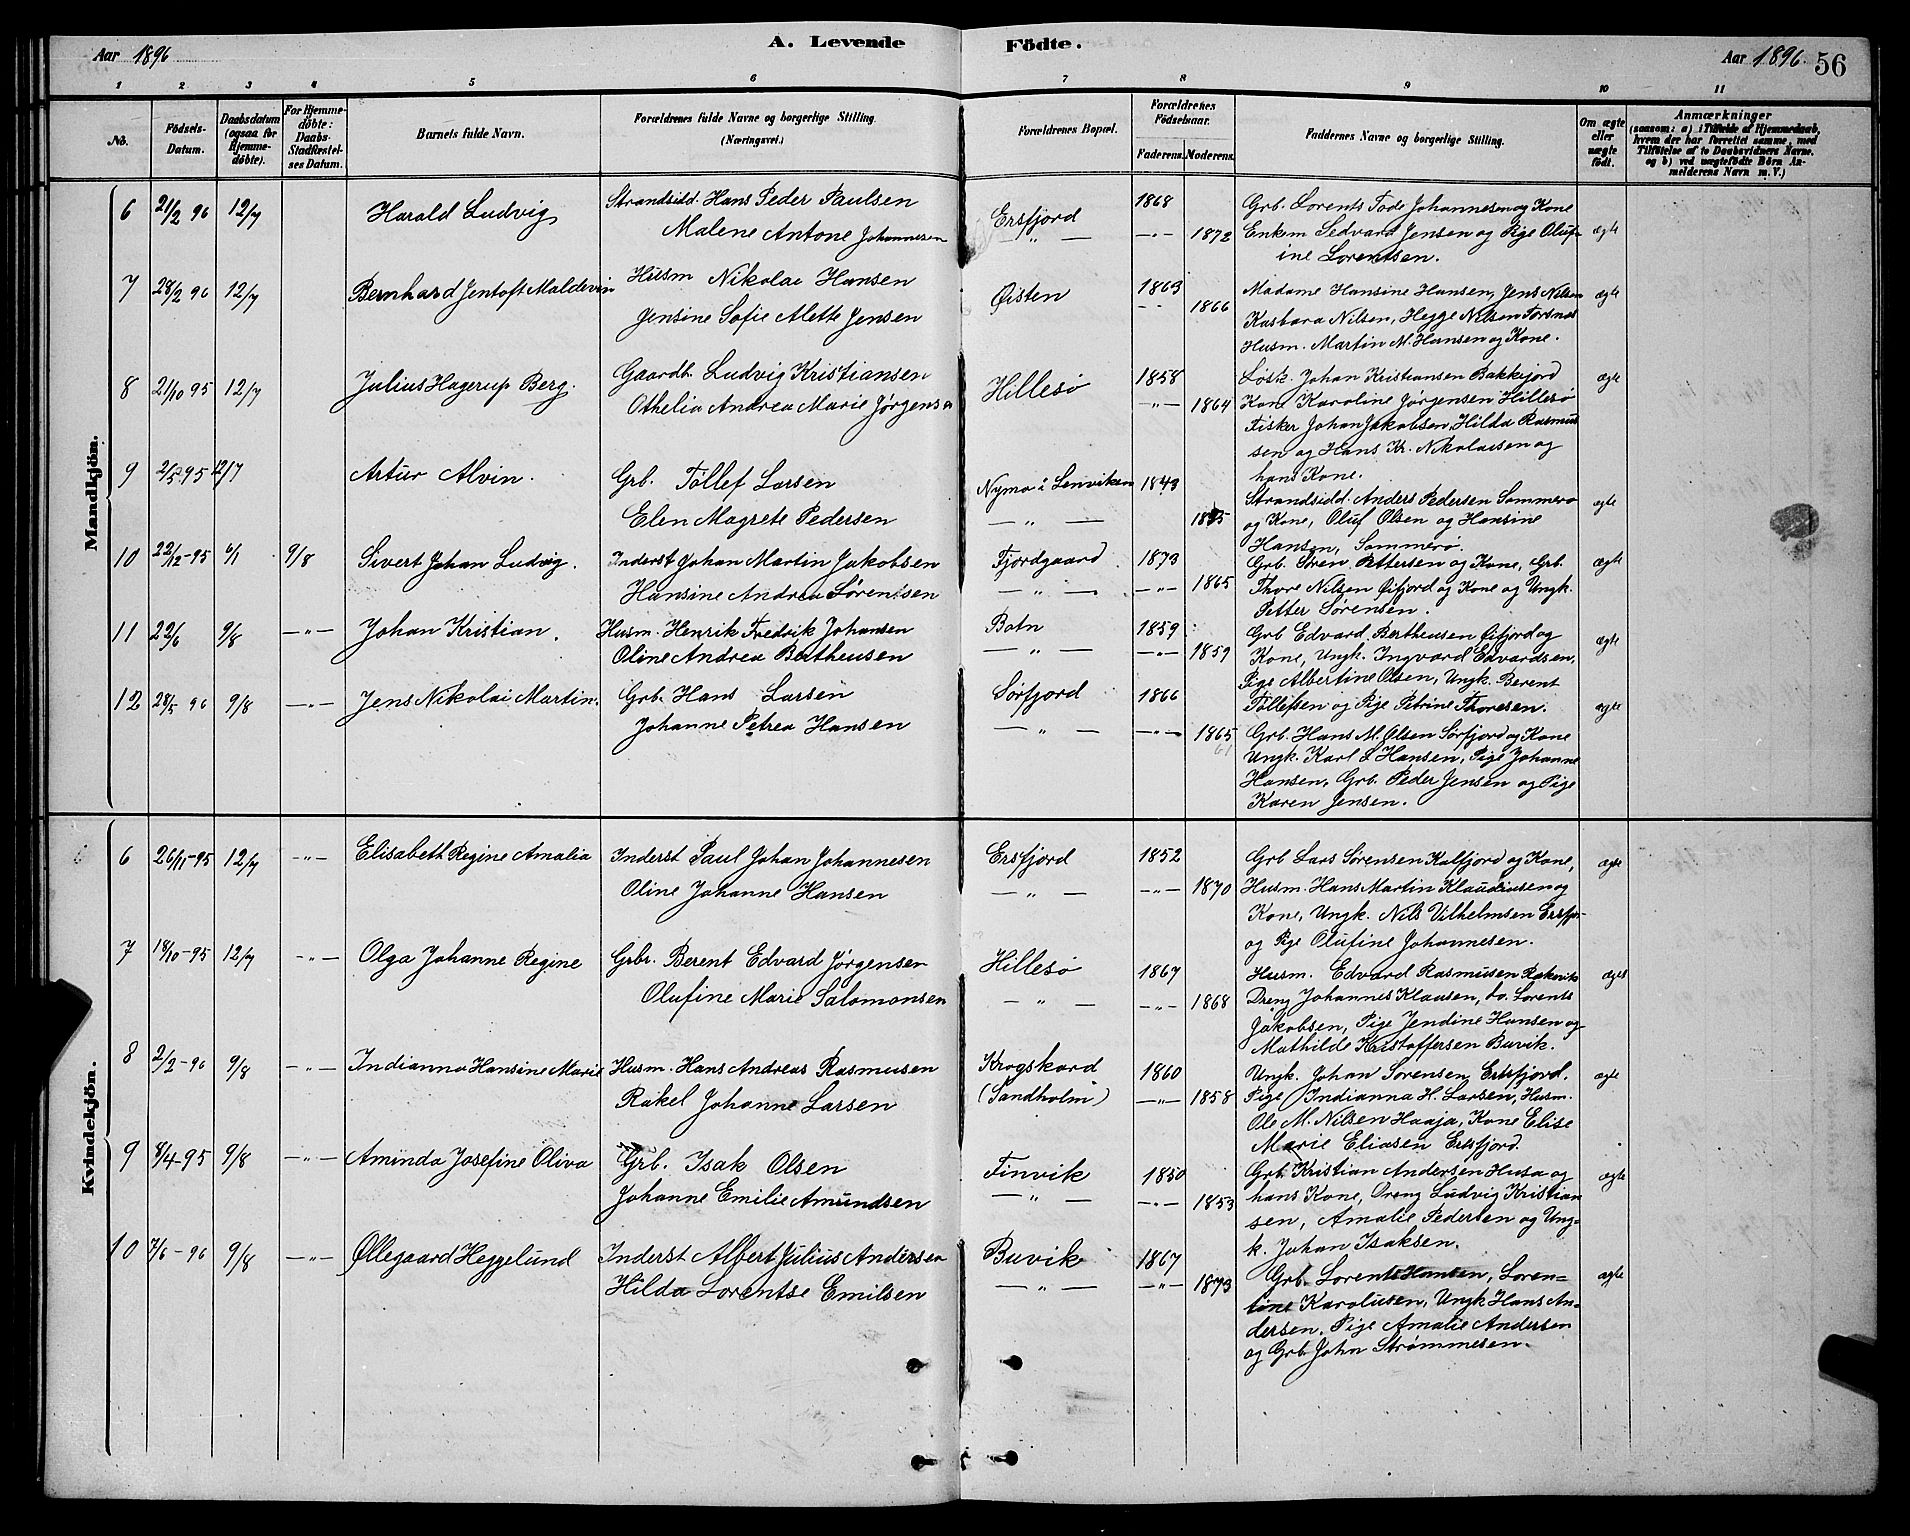 Aar 1896 A. Levende Födte. Aar 1896. 56
1 2 3 4 5 6 7 8 9 10 11
No. Födsels-Datum. Daabsdatum (ogsaa for Hjemme-döbte). For Hjemme-döbte: Daabs-Stadfæstel-ses Datum. Barnets fulde Navn. Forældrenes fulde Navne og borgerlige Stilling. (Næringsvei.) Forældrenes Bopæl. Forældrenes Födselsaar. Faderens. Moderens. Faddernes Navne og borgerlige Stilling. Om ægte eller uægte födt. Anmærkninger (saasom: a) i Tilfælde af Hjemmedaab, hvem der har forrettet samme, med Tilföielse af to Daabsvidners Navne, og b) ved uægtefödte Börn Anmelderens Navn m. V.)
Mandkjön.
6 21/2 96 12/7 Harald Ludvig Strandsidd. Hans Peder Paulsen Ersfjord 1868 Grb. Lorents Tode Johannesen og Kone ægte
Malene Antone Johannesen — " — —"— 1872 Enkem Sedvard Jensen og Pige Oluf-
ine Lorentsen.
7 28/2 96 12/7 Bernhard Jentoft Maldevin Husm Nikolai Hansen Øisten 1863 Madame Hansine Hansen, Jens Nilsen ægte
Jensine Sofie Alette Jensen —"— 1866 Kasbara Nilsen, Hegge Nilsen Torsnes
Husm. Martin M. Hansen og Kone.
8 21/10 95 12/7 Julius Hagerup Berg. Gaardb. Ludvig Kristiansen Hillesø 1858 Løsk. Johan Kristiansen Bakkejord ægte
Othelia Andrea Marie Jørgensen —"— 1864 Kone Karoline Jørgensen Hillesø
Fisker Johan Jakobsen, Hilda Rasmus
sen og Hans Kr. Nikolaisen og
hans Kone.
9 2/5 95 12/7 Artur Alvin. Grb. Tøllef Larsen Nymo i Lenviken 1843 Strandsidd. Anders Pedersen Sommerø ægte
Elen Magrete Pedersen — " — og Kone, Oluf Olsen og Hansine
Hansen, Sommerø.
10 22/12-95 6/1 9/8 Sivert Johan Ludvig. Inderst Johan Martin Jakobsen Fjordgaard 1873 Grb. Søren Pettersen og Kone, Grb. ægte
Hansine Andrea Sørentsen — " — —"— 1865 Thore Nilsen Øifjord og Kone og Ungk.
Petter Sørensen.
11 22/6 9/8 —"— Johan Kristian. Husm. Henrik Fredrik Johansen Botn 1859 Grb Edvard Bertheusen Øifjord og ægte
Oline Andrea Bertheusen — " — —"— 1859 Kone, Ungk. Ingvard Edvardsen,
Pige Albertine Olsen, Ungk. Berent
12 28/5 96 9/8 —"— Jens Nikolai Martin. Grb. Hans Larsen Sørfjord 1866 Tøllefsen og Pige Petrine Thoresen. ægte
Johanne Petrea Hansen — " — —"— 1865 Grb. Hans M. Olsen Sørfjord og Kone
61 Ungk. Karl L Hansen, Pige Johanne
Hansen, Grb. Peder Jensen og Pige
Karen Jensen.
Kvindekjön.
6 26/11-95 12/7 —"— Elisabeth Regine Amalia Inderst Paul Johan Johannesen Ersfjord 1852 Grb Lars Sørensen Kalfjord og Kone, ægte
Oline Johanne Hansen — " — —"— 1870 Husm. Hans Martin Klaudiusen og
Kone, Ungk. Nils Vilhelmsen Ersfjo-
og Pige Olufine Johannesen.
7 18/10-95 12/7 —"— Olga Johanne Regine Grbr. Berent Edvard Jørgensen Hillesø 1867 Husm. Edvard Rasmusen Rakvik ægte
Olufine Marie Salomonsen — " — —"— 1868 Dreng Johannes Klausen, do. Lorents
Jakobsen, Pige Jendine Hansen og
Mathilde Kristoffersen Buvik.
8 2/2-96 9/8 —"— Indianna Hansine Marie Husm. Hans Andreas Rasmusen Krogskard 1860 Ungk. Johan Sørensen, Ersfjord. ægte
Rakel Johanne Larsen (Sandholm) —"— 1858 Pige Indianna H. Larsen, Husm.
Ole M. Nilsen Haaja, Kone Elise
Marie Eliasen Ersfjord.
9 8/4-95 9/8 —"— Aminda Josefine Oliva Grb. Isak Olsen Finvik 1850 Grb. Kristian Andersen Husa og ægte
Johanne Emilie Amundsen — " — —"— 1853 hans Kone, Dreng Ludvig Kristian
sen, Amalie Pedersen og Ung-
k. Johan Isaksen.
10 7/6-96 9/8 —"— Øllegaard Heggelund Inderst Albert Julius Andersen Buvik 1867 Grb. Lorents Hansen, Loren- ægte
Hilda Lorentse Emilsen — " — —"— 1873 tine Karolusen, Ungk Hans An-
dersen, Pige Amalie Andersen
og Grb. John Strømmesen.